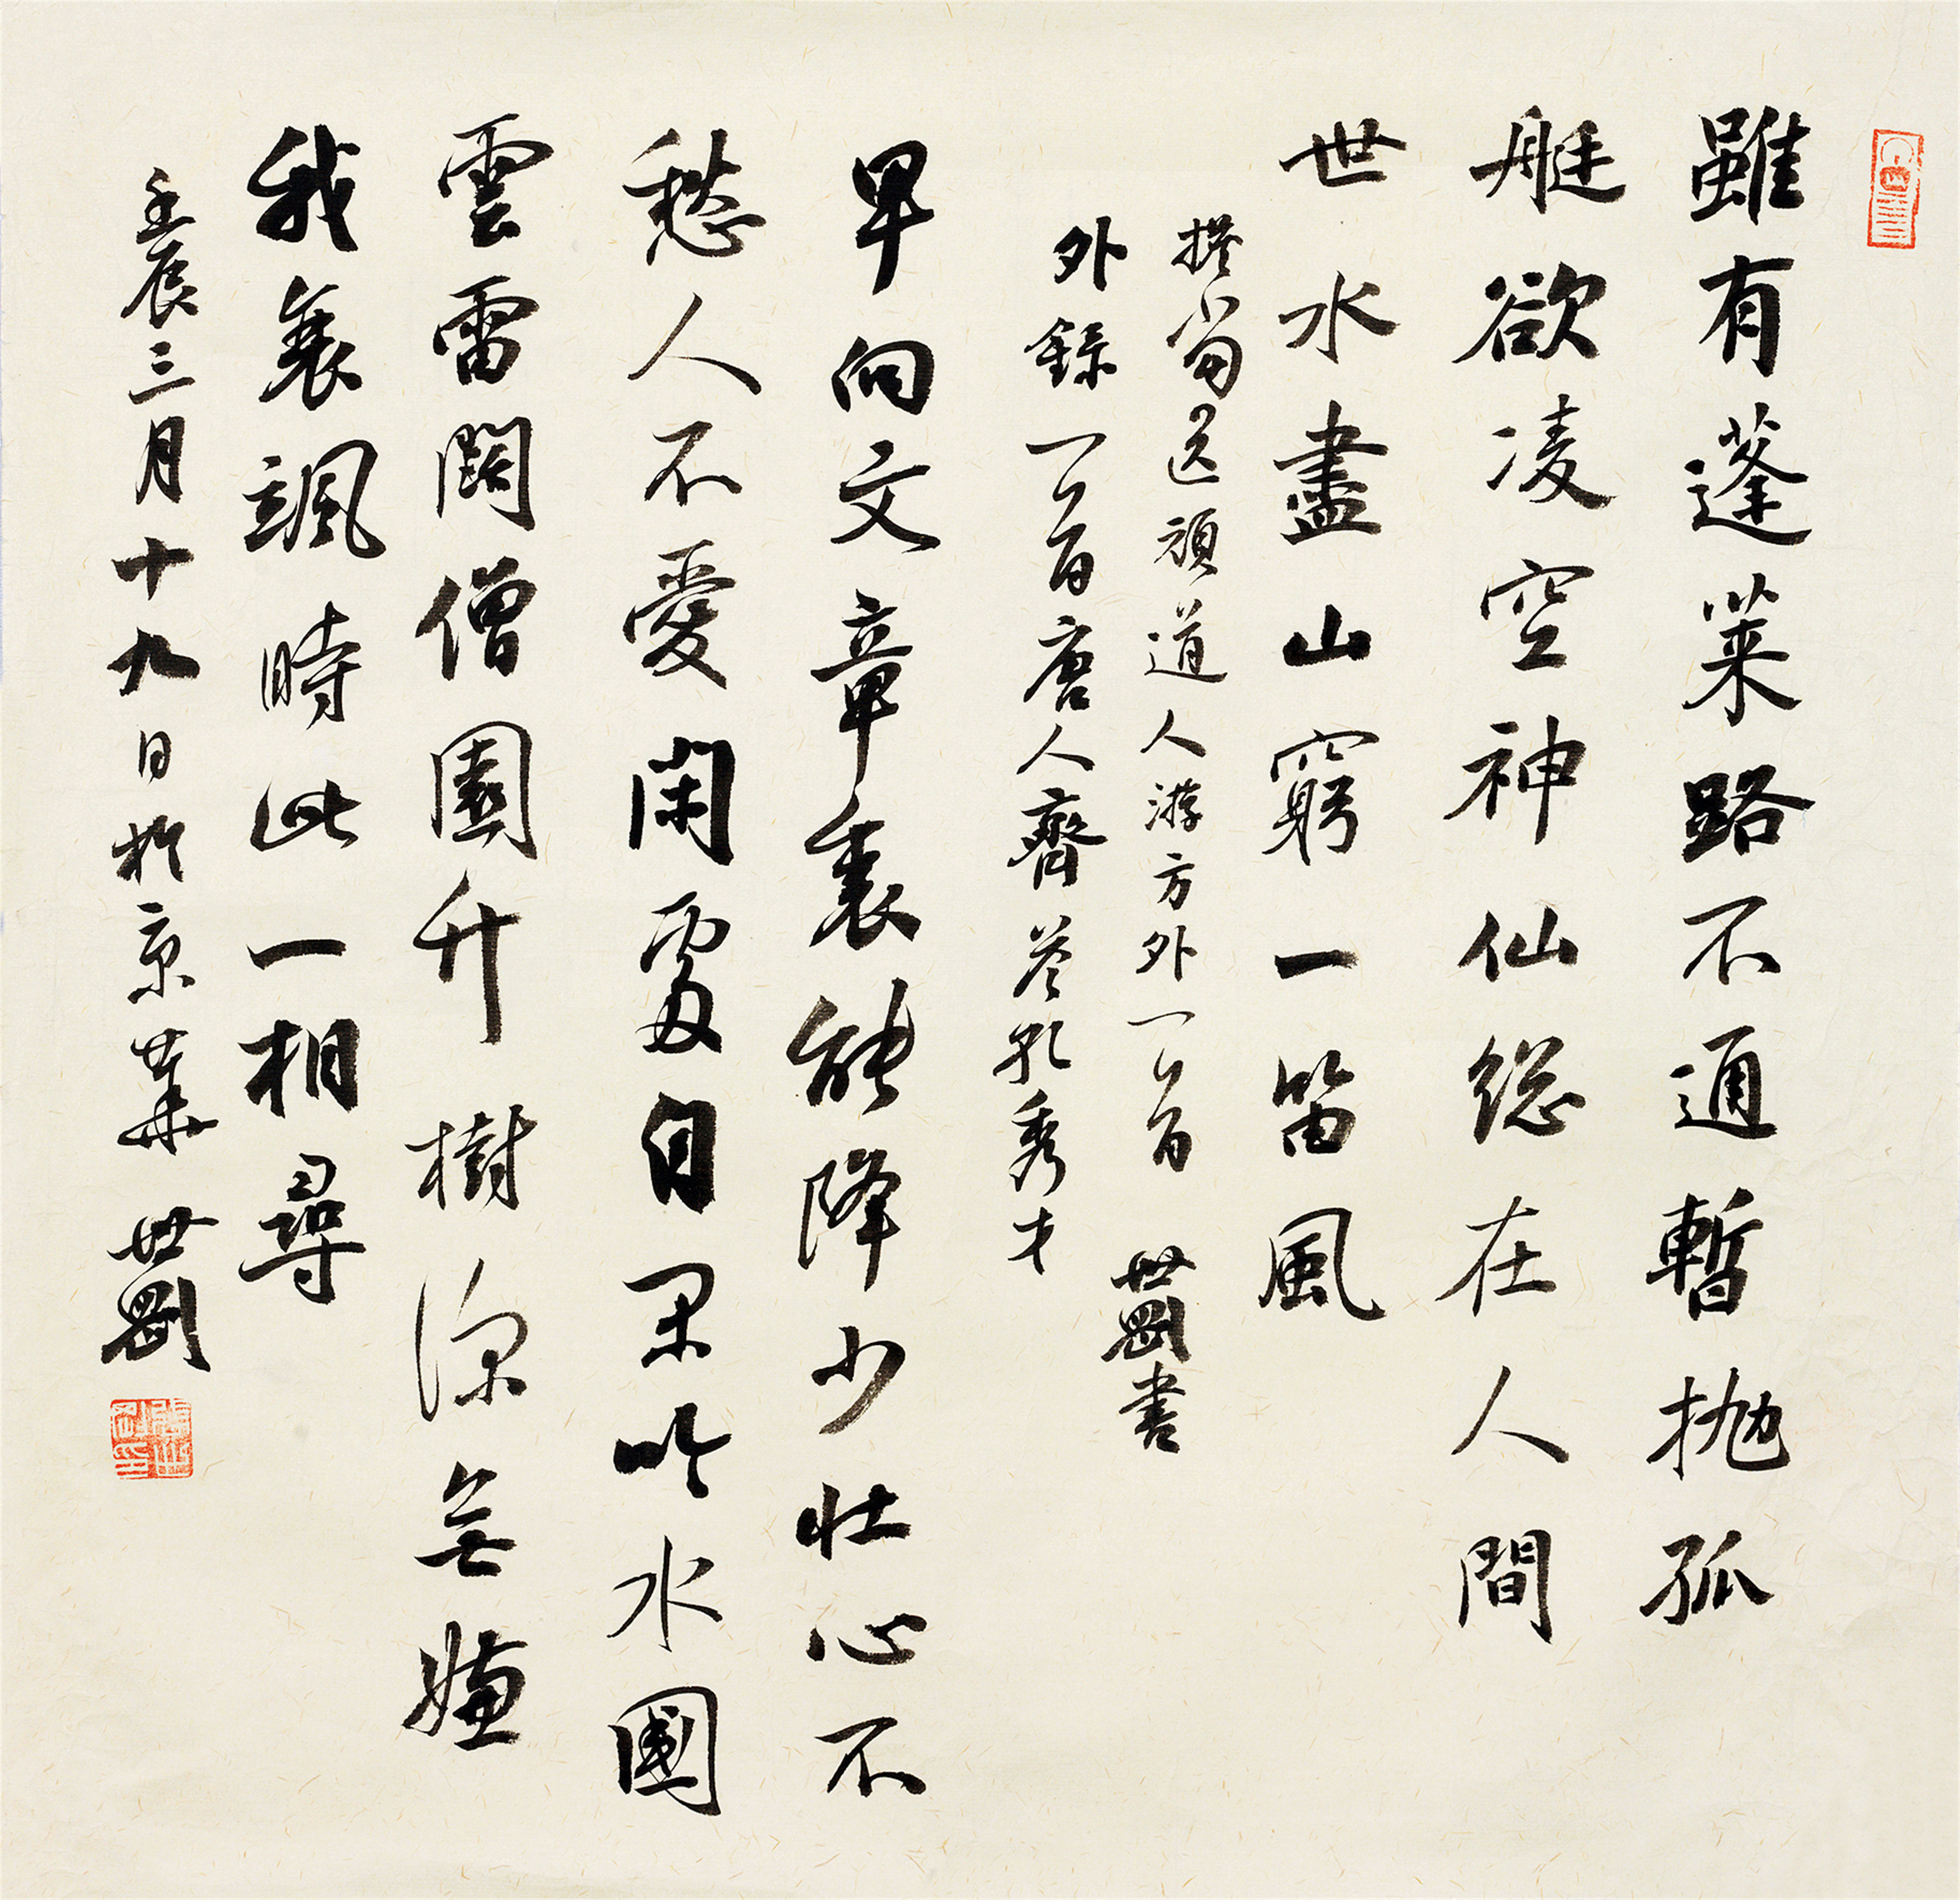 雖有蓬萊路不通暫拋孤
艇欲凌空神仙總在人間
世水盡山窮一笛風
揆芻送頑道人游方外一首 世劚書
外錄一首唐人齊己荅孔秀才
早向文章裏能降少壯心不
愁人不愛閑處自果吟水國
雲雷闊僧園竹樹深無嫌
我衰颯時此一相尋
壬辰三月十九日於京華 世劚